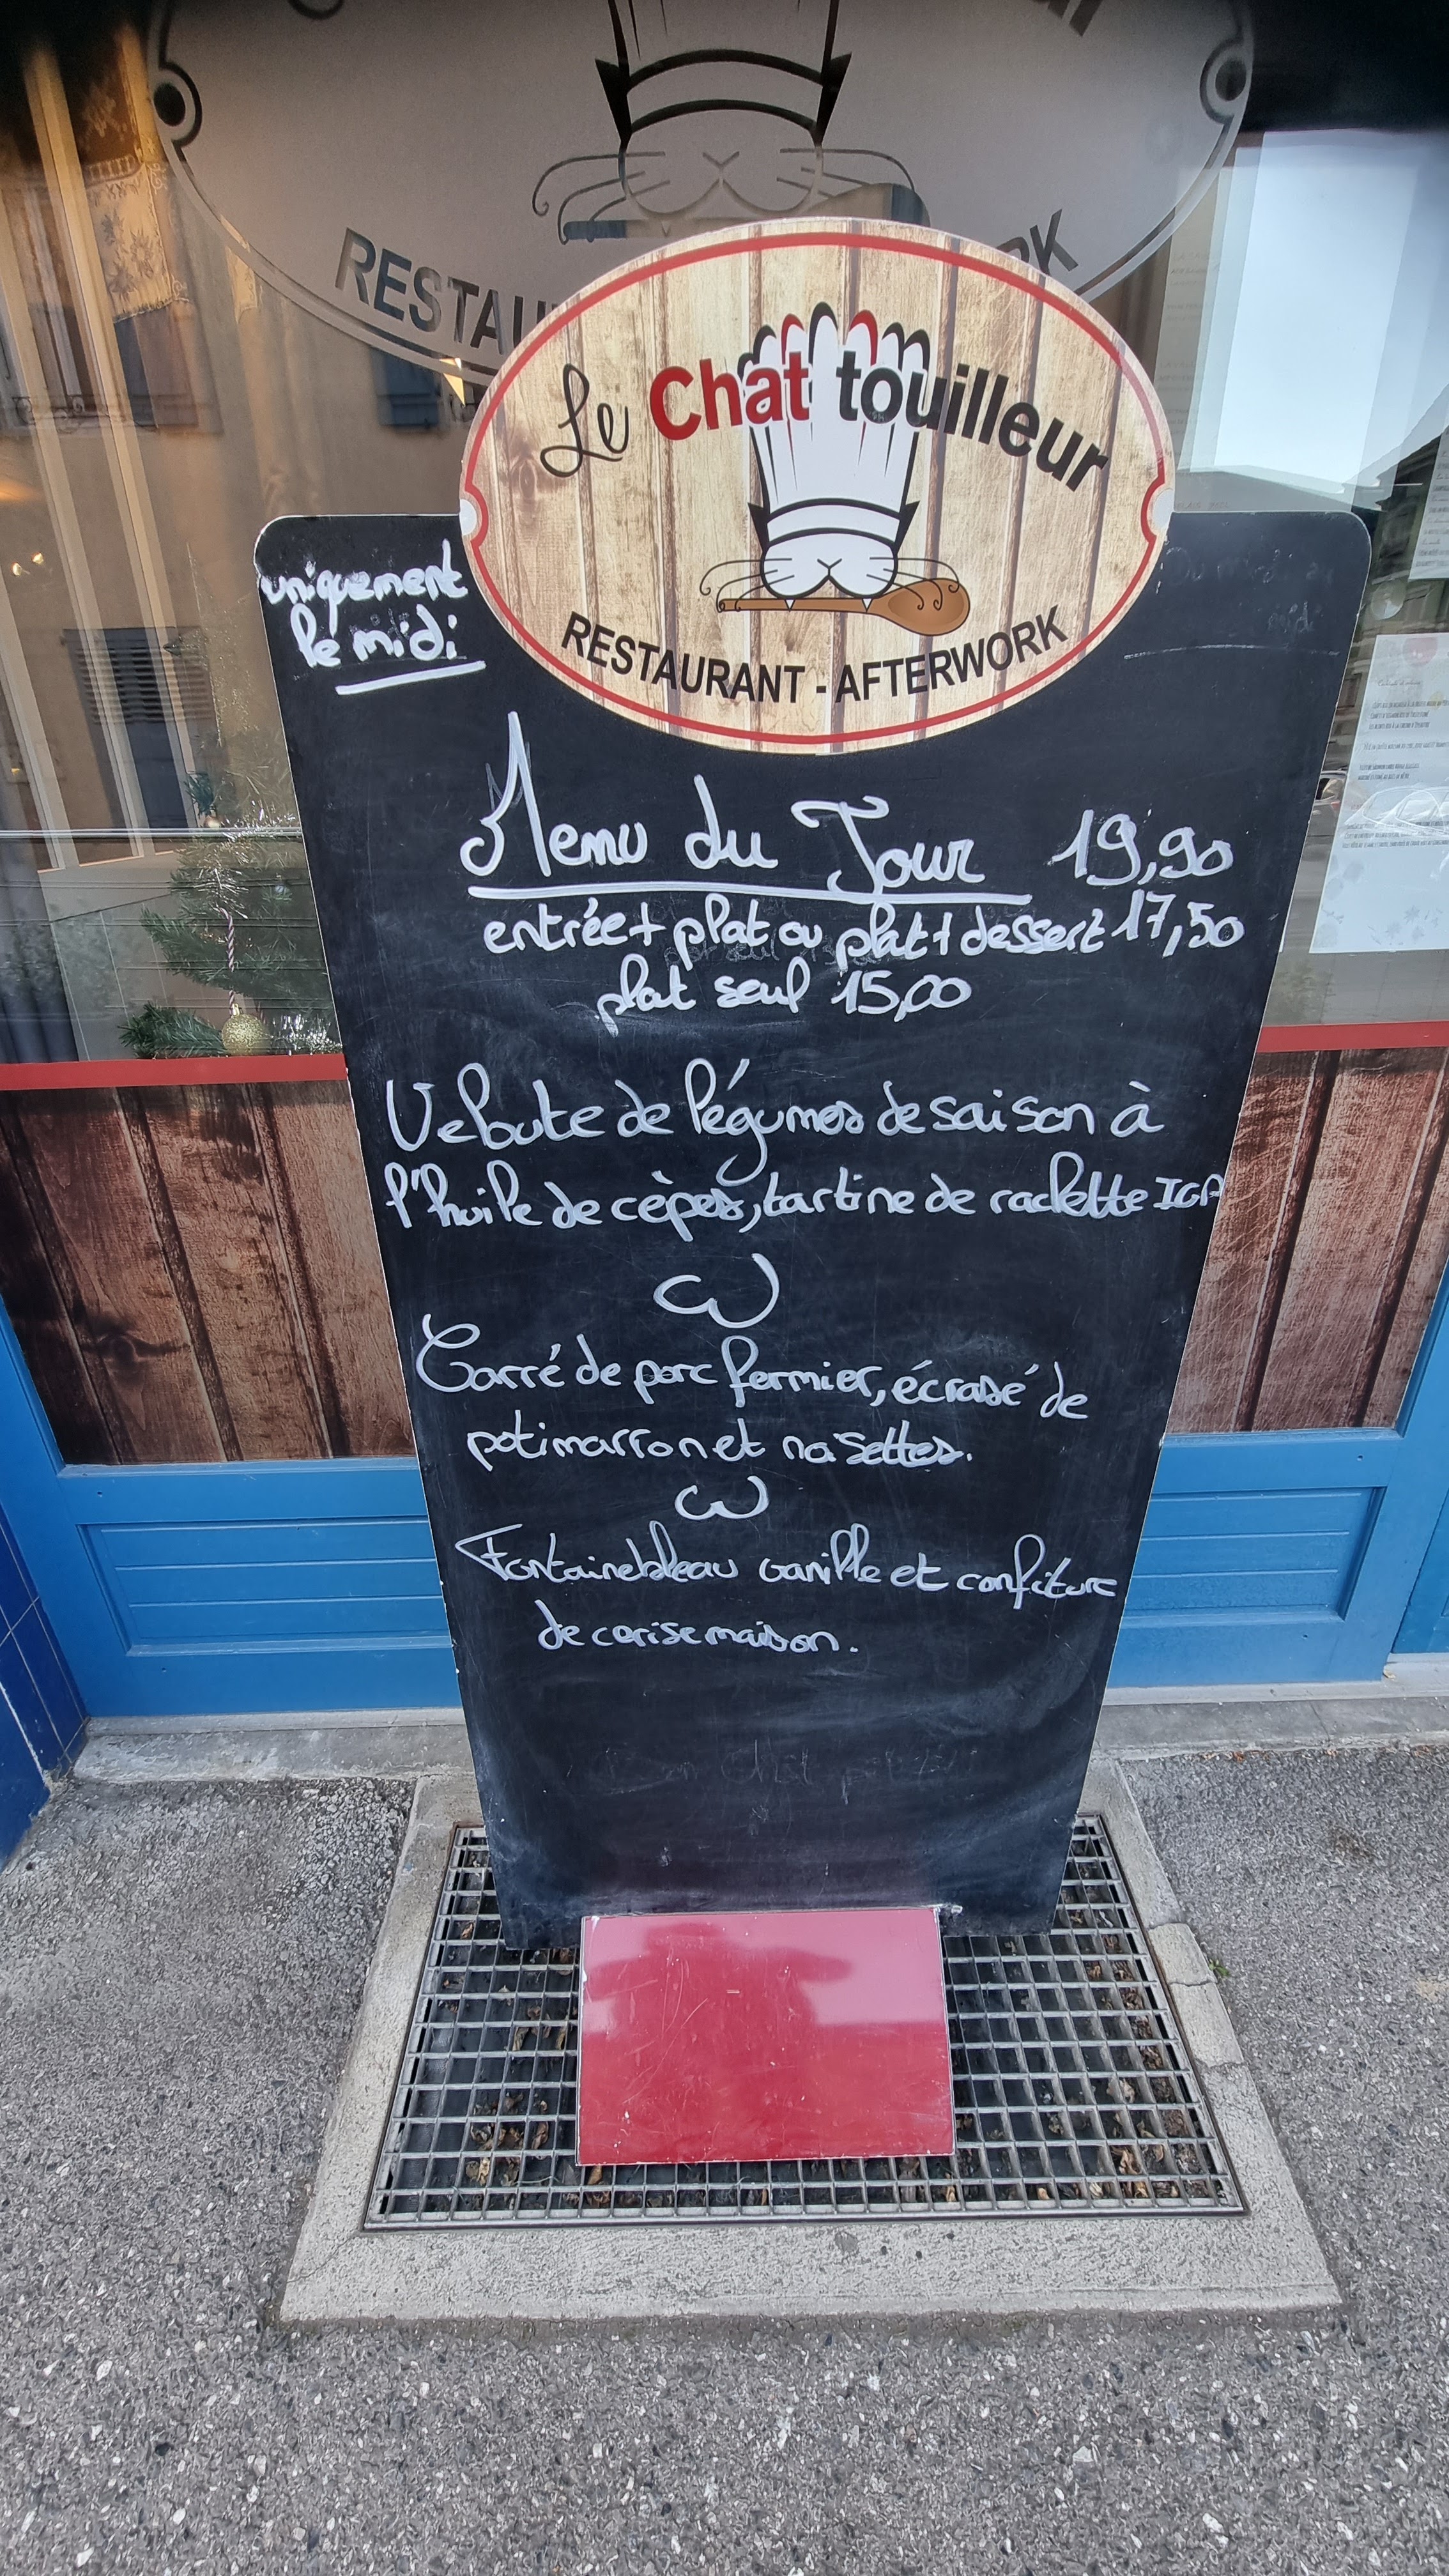 RESTAU
RK
Le Chat touilleur
RESTAURANT - AFTERWORK
uniquement
le midi
Menu du Jour 19,90
entrée + plat ou plat + dessert 17,50
plat seul 15,00
Veloute de légumes de saison à
l'huile de cèpes, tartine de raclette IGP
Carré de porc fermier, écrasé de
potimarron et noisettes.
Fontainebleau vanille et confiture
de cerise maison.